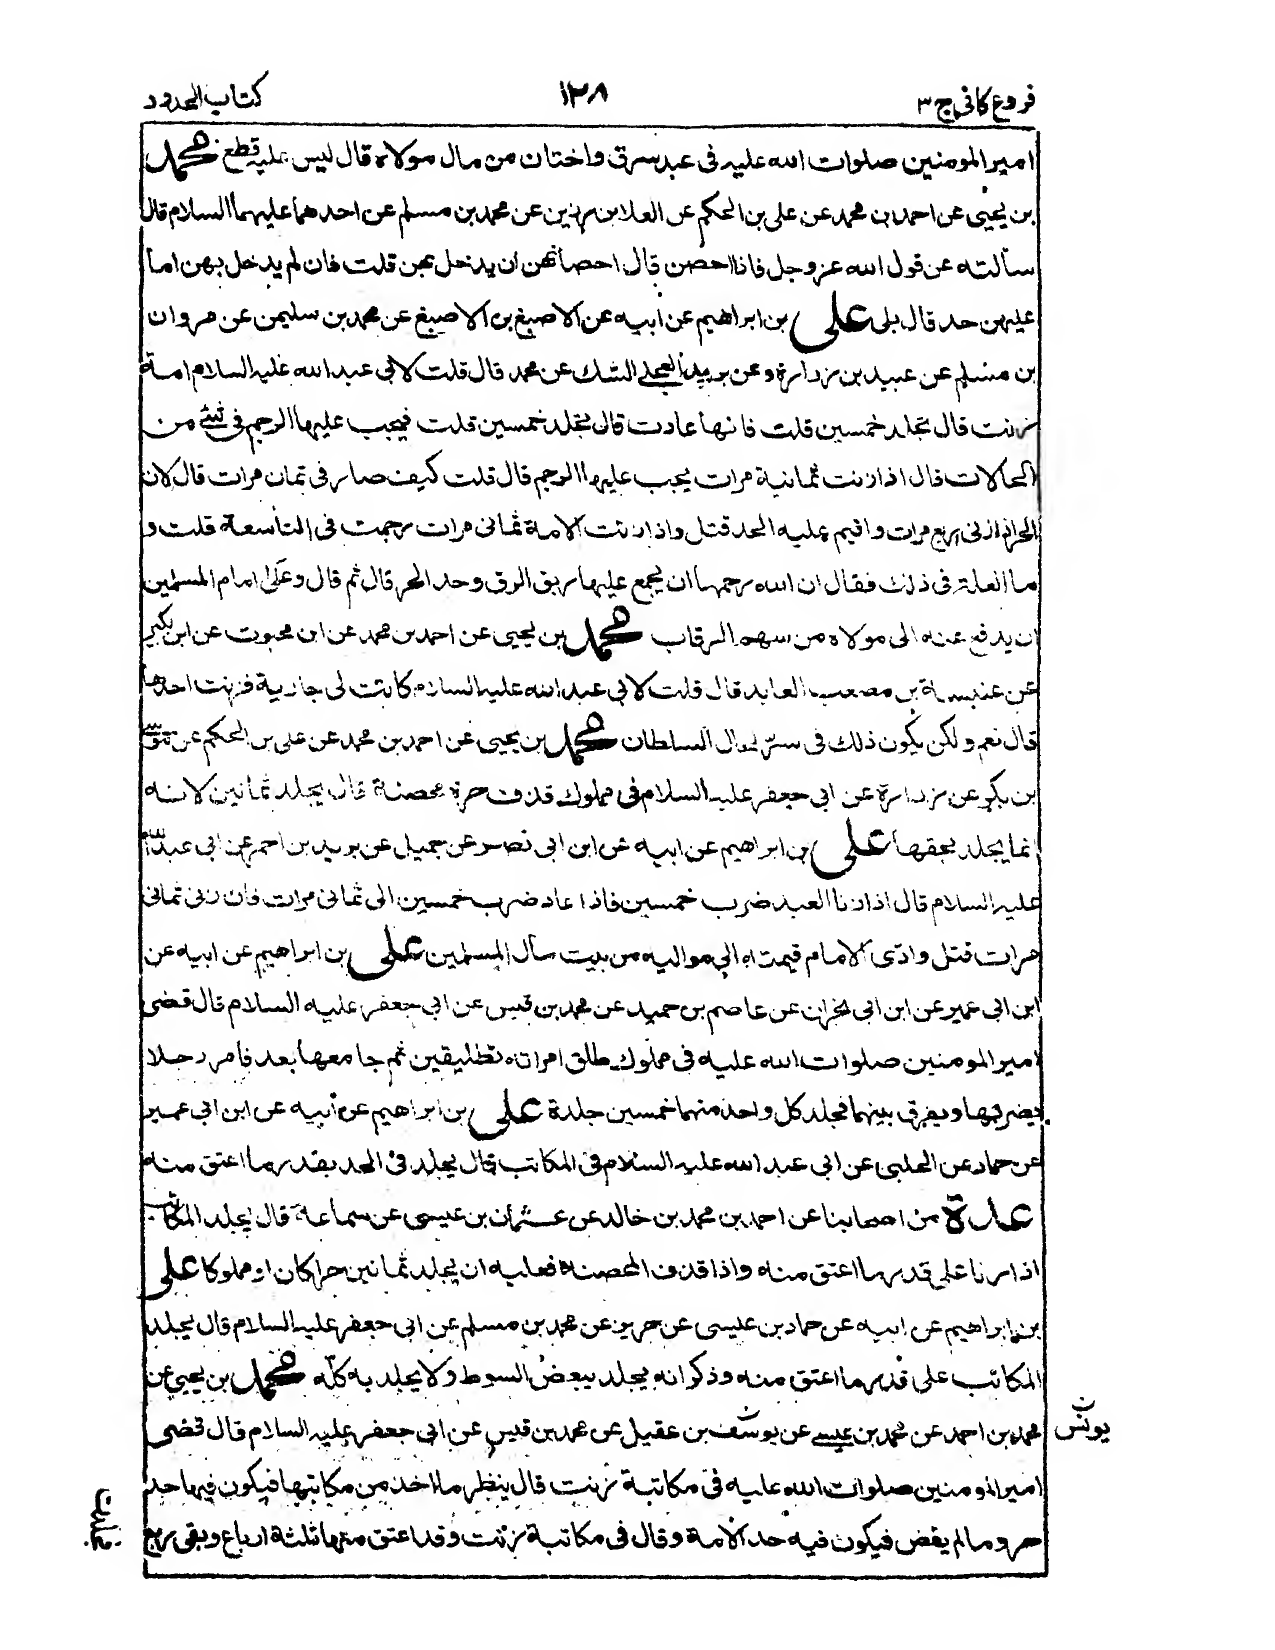 فروع کافی ج ۳
۱۲۸
کتاب الحدود
امیرالمومنین صلوات الله علیه فی عبد سرق واختان من مال مولاه قال لیس علیه قطع محمد
بن یحیی عن احمد بن محمد عن علی بن الحکم عن العلا بن رزین عن محمد بن مسلم عن احدهما علیهما السلام قال
سألته عن قول الله عزوجل فاذا احصن قال احصانهن ان یدخل بهن قلت فان لم یدخل بهن اما
علیهن حد قال بلی علی بن ابراهیم عن ابیه عن الاصبغ بن الاصبغ عن محمد بن سلیمن عن مروان
بن مسلم عن عبید بن زرارة وعن برید العجلی الشک عن محمد قال قلت لابی عبد الله علیه السلام امة
زنت قال تجلد خمسین قلت فانها عادت قال تجلد خمسین قلت فیجب علیها الرجم فی شئ من
الحالات قال اذا زنت ثمانیة مرات یجب علیها الرجم قال قلت کیف صار فی ثمان مرات قال لان
الحر اذا زنی اربع مرات واقیم علیه الحد قتل واذا زنت الامة ثمانی مرات رجمت فی التاسعة قلت و
ما العلة فی ذلک فقال ان الله رحمها ان یجمع علیها ربق الرق وحد الحر قال ثم قال وعلی امام المسلمین
ان یدفع عنه الی مولاه من سهم الرقاب محمد بن یحیی عن احمد بن محمد عن ابن محبوب عن ابن بکیر
عن عنبسة بن مصعب العابد قال قلت لابی عبد الله علیه السلام کانت لی جاریة فزنت احدها
قال نعم ولکن یکون ذلک فی ستر لحال السلطان محمد بن یحیی عن احمد بن محمد عن علی بن الحکم عن موسی
بن بکر عن زرارة عن ابی جعفر علیه السلام فی مملوک قذف حرة محصنة قال یجلد ثمانین لانه
انما یجلد بحقها علی بن ابراهیم عن ابیه عن ابن ابی نصر عن جمیل عن برید بن احمر عن ابی عبد الله
علیه السلام قال اذا زنا العبد ضرب خمسین فاذا عاد ضرب خمسین الی ثمانی مرات فان زنی ثمانی
مرات قتل وادی الامام قیمته الی موالیه من بیت مال المسلمین علی بن ابراهیم عن ابیه عن
ابن ابی عمیر عن ابن ابی نجران عن عاصم بن حمید عن محمد بن قیس عن ابی جعفر علیه السلام قال قضی
امیرالمومنین صلوات الله علیه فی مملوک طلق امراته تطلیقین ثم جامعها بعد فامر رجلا
یضربها ویفرق بینهما فجلد کل واحد منهما خمسین جلدة علی بن ابراهیم عن أبیه عن ابن ابی عمیر
عن حماد عن الحلبی عن ابی عبد الله علیه السلام فی المکاتب قال یجلد فی الحد بقدر ما اعتق منه
عدة من اصحابنا عن احمد بن محمد بن خالد عن عثمان بن عیسی عن سماعة قال یجلد المکاتب
اذا زنا علی قدر ما اعتق منه واذا قذف المحصنة فعلیه ان یجلد ثمانین حرا کان او مملوکا علی
بن ابراهیم عن ابیه عن حماد بن عیسی عن حریز عن محمد بن مسلم عن ابی جعفر علیه السلام قال یجلد
المکاتب علی قدر ما اعتق منه وذکر انه یجلد ببعض السوط ولا یجلد به کله محمد بن یحیی عن
محمد بن احمد عن محمد بن عیسی عن یوسف بن عقیل عن محمد بن قیس عن ابی جعفر علیه السلام قال قضی
یونس
امیرالمومنین صلوات الله علیه فی مکاتبة زنت قال ینظر ما اخذ من مکاتبها فیکون فیها حد
حر وما لم یقض فیکون فیه حد الأمة وقال فی مکاتبة زنت وقد اعتق منها ثلثة ارباع وبقی ربع